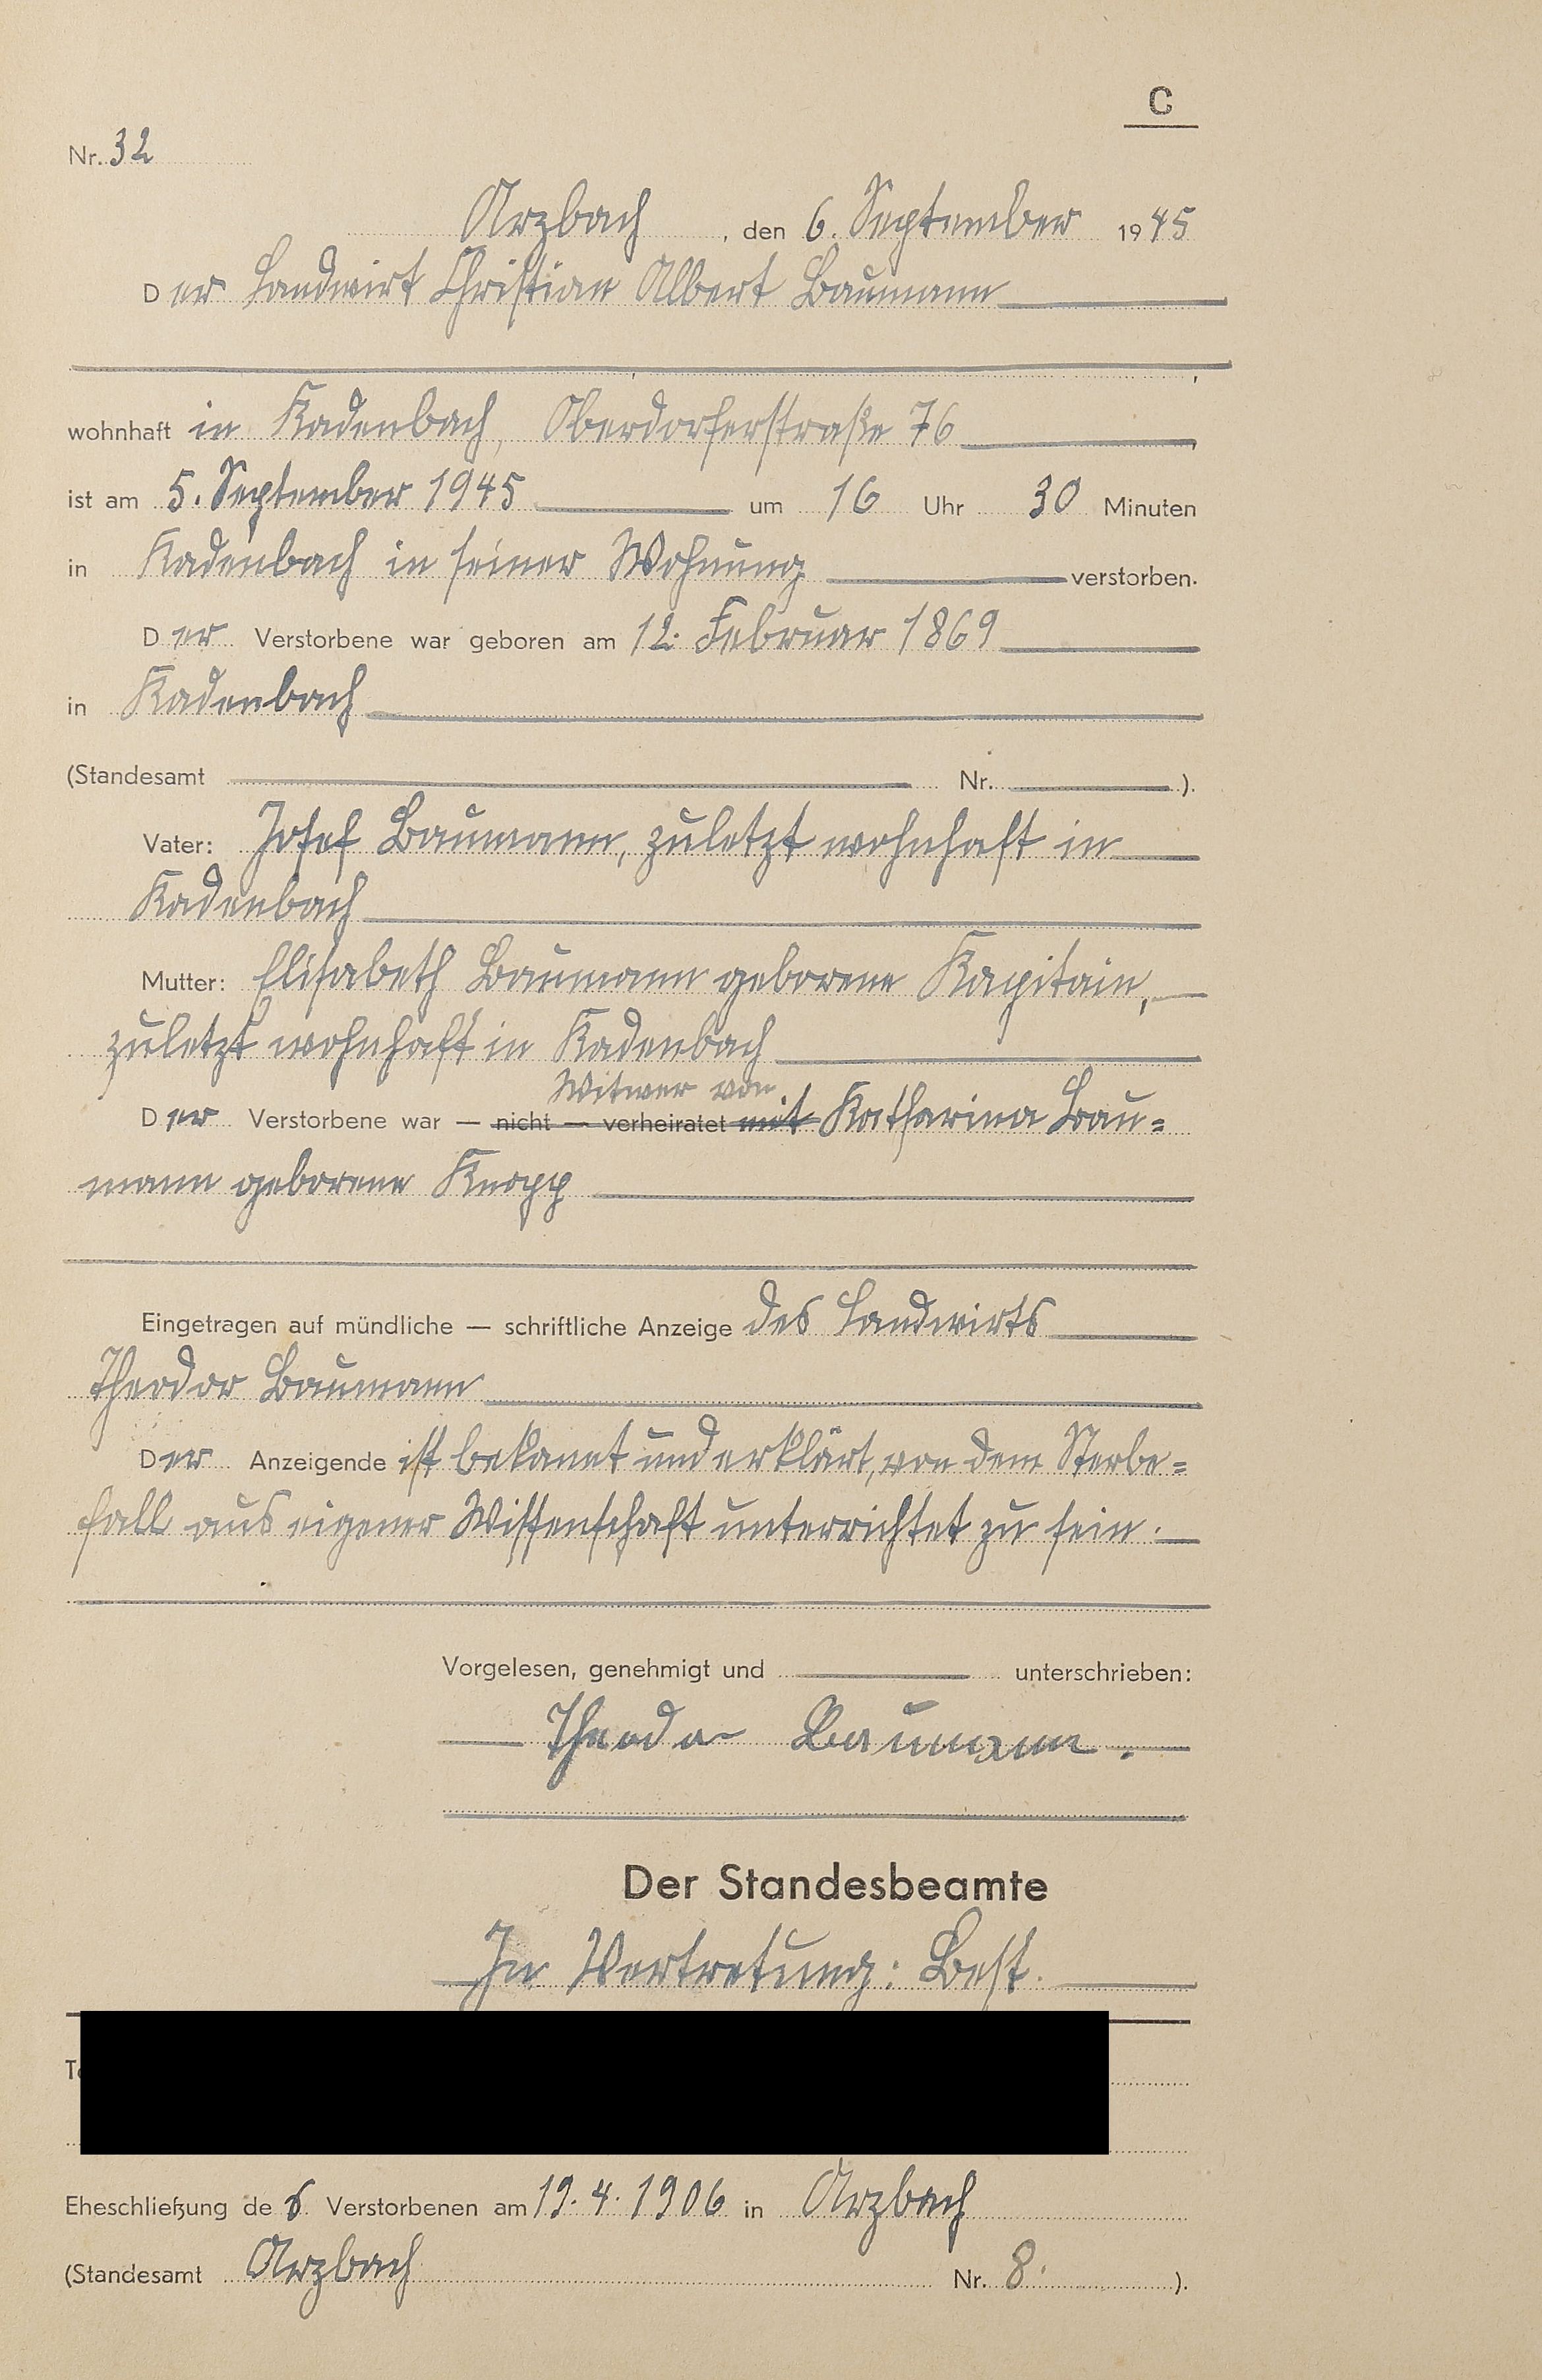 C
Nr. 32
Arzbach, den 6. September 1945
Der Landwirt Christian Albert Baumann
wohnhaft in Kadenbach, Oberdorferstraße 76
ist am 5. September 1945 um 16 Uhr 30 Minuten
in Kadenbach in seiner Wohnung verstorben.
Der Verstorbene war geboren am 12. Februar 1869
in Kadenbach
(Standesamt Nr. ).
Vater: Josef Baumann, zuletzt wohnhaft in
Kadenbach
Mutter: Elisabeth Baumann geborene Kapitain,
zuletzt wohnhaft in Kadenbach
Witwer von
Der Verstorbene war — nicht — verheiratet mit Katharina Bau=
mann geborene Knopp
Eingetragen auf mündliche — schriftliche Anzeige des Landwirts
Theodor Baumann
Der Anzeigende ist bekannt und erklärt, von dem Sterbe=
fall aus eigener Wissenschaft unterrichtet zu sein.
Vorgelesen, genehmigt und unterschrieben:
Theodor Baumann.
Der Standesbeamte
In Vertretung: Best.
Eheschließung des Verstorbenen am 19.4.1906 in Arzbach
(Standesamt Arzbach Nr. 8.).